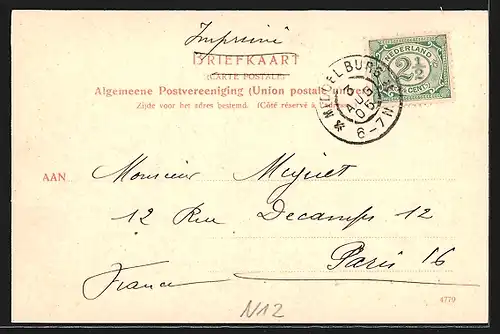 Imprimé
BRIEFKAART
(CARTE POSTALE)
Algemeene Postvereeniging (Union postale universelle)
Zijde voor het adres bestemd. (Côté réservé à l'adresse)
NEDERLAND
2½
CENT
MIDDELBURG
3 AUG 05
6-7N
AAN
Monsieur Miguet
12 Rue Decamps 12
Paris 16
France
N12
4779